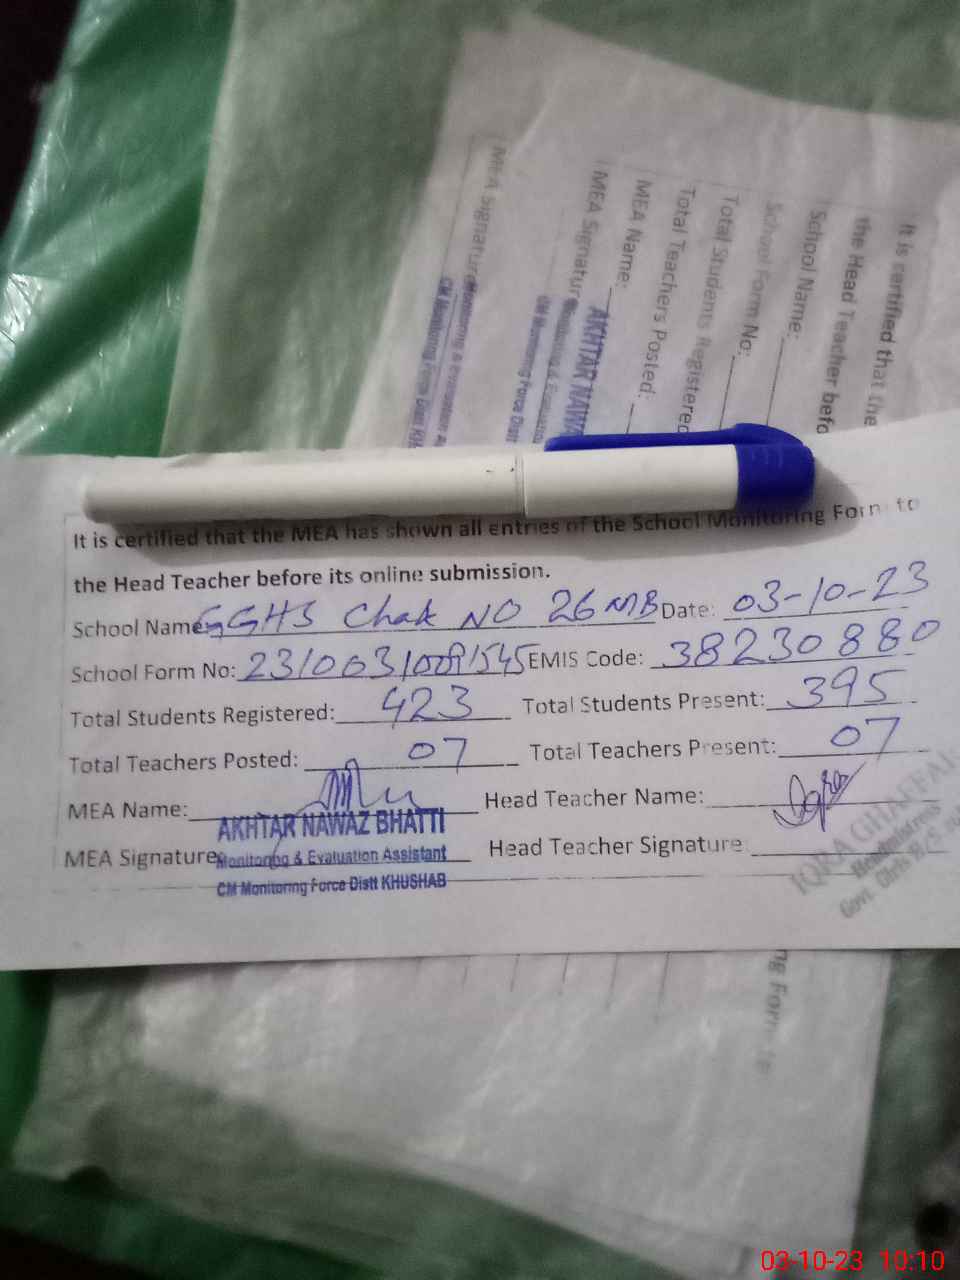 It is certified that the
the Head Teacher befo
School Name:
School Form No:
Total Students Registered
Total Teachers Posted:
MEA Name:
MEA Signature
AKHTAR NAWA
Monitoring & Evaluation
CM Monitoring Force Distt
MEA Signature
Monitoring & Evaluation A
CM Monitoring Force Distt KH
It is certified that the MEA has shown all entries of the School Monitoring Form to
the Head Teacher before its online submission.
School Name GGHS Chak NO 26 MB Date: 03-10-23
School Form No: EMIS Code: 38230880
Total Students Registered: 423 Total Students Present: 395
Total Teachers Posted: 07 Total Teachers Present: 07
MEA Name: Head Teacher Name:
AKHTAR NAWAZ BHATTI
MEA Signature Head Teacher Signature:
Monitoring & Evaluation Assistant
CM Monitoring Force Distt KHUSHAB
IQRA GHAFFAR
Headmistress
Govt. Girls H/S
ng Form to
03-10-23 10:10